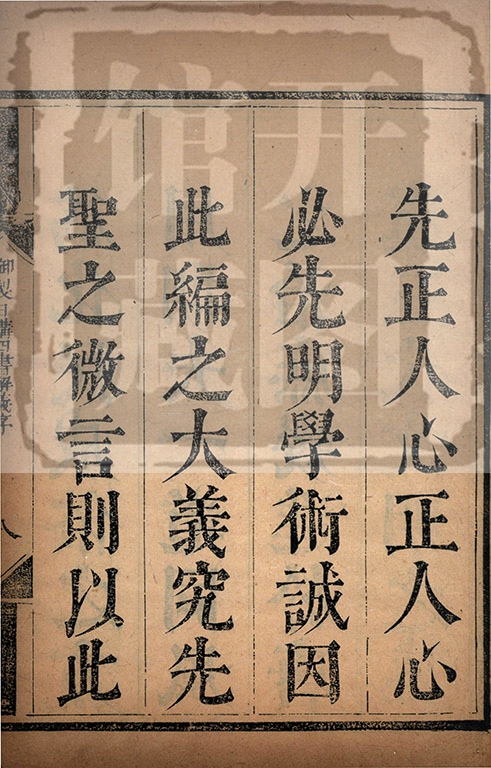 先正人心正人心
必先明學術誠因
此編之大義究先
聖之微言則以此
御製日講四書解義序
八
开馆
图藏